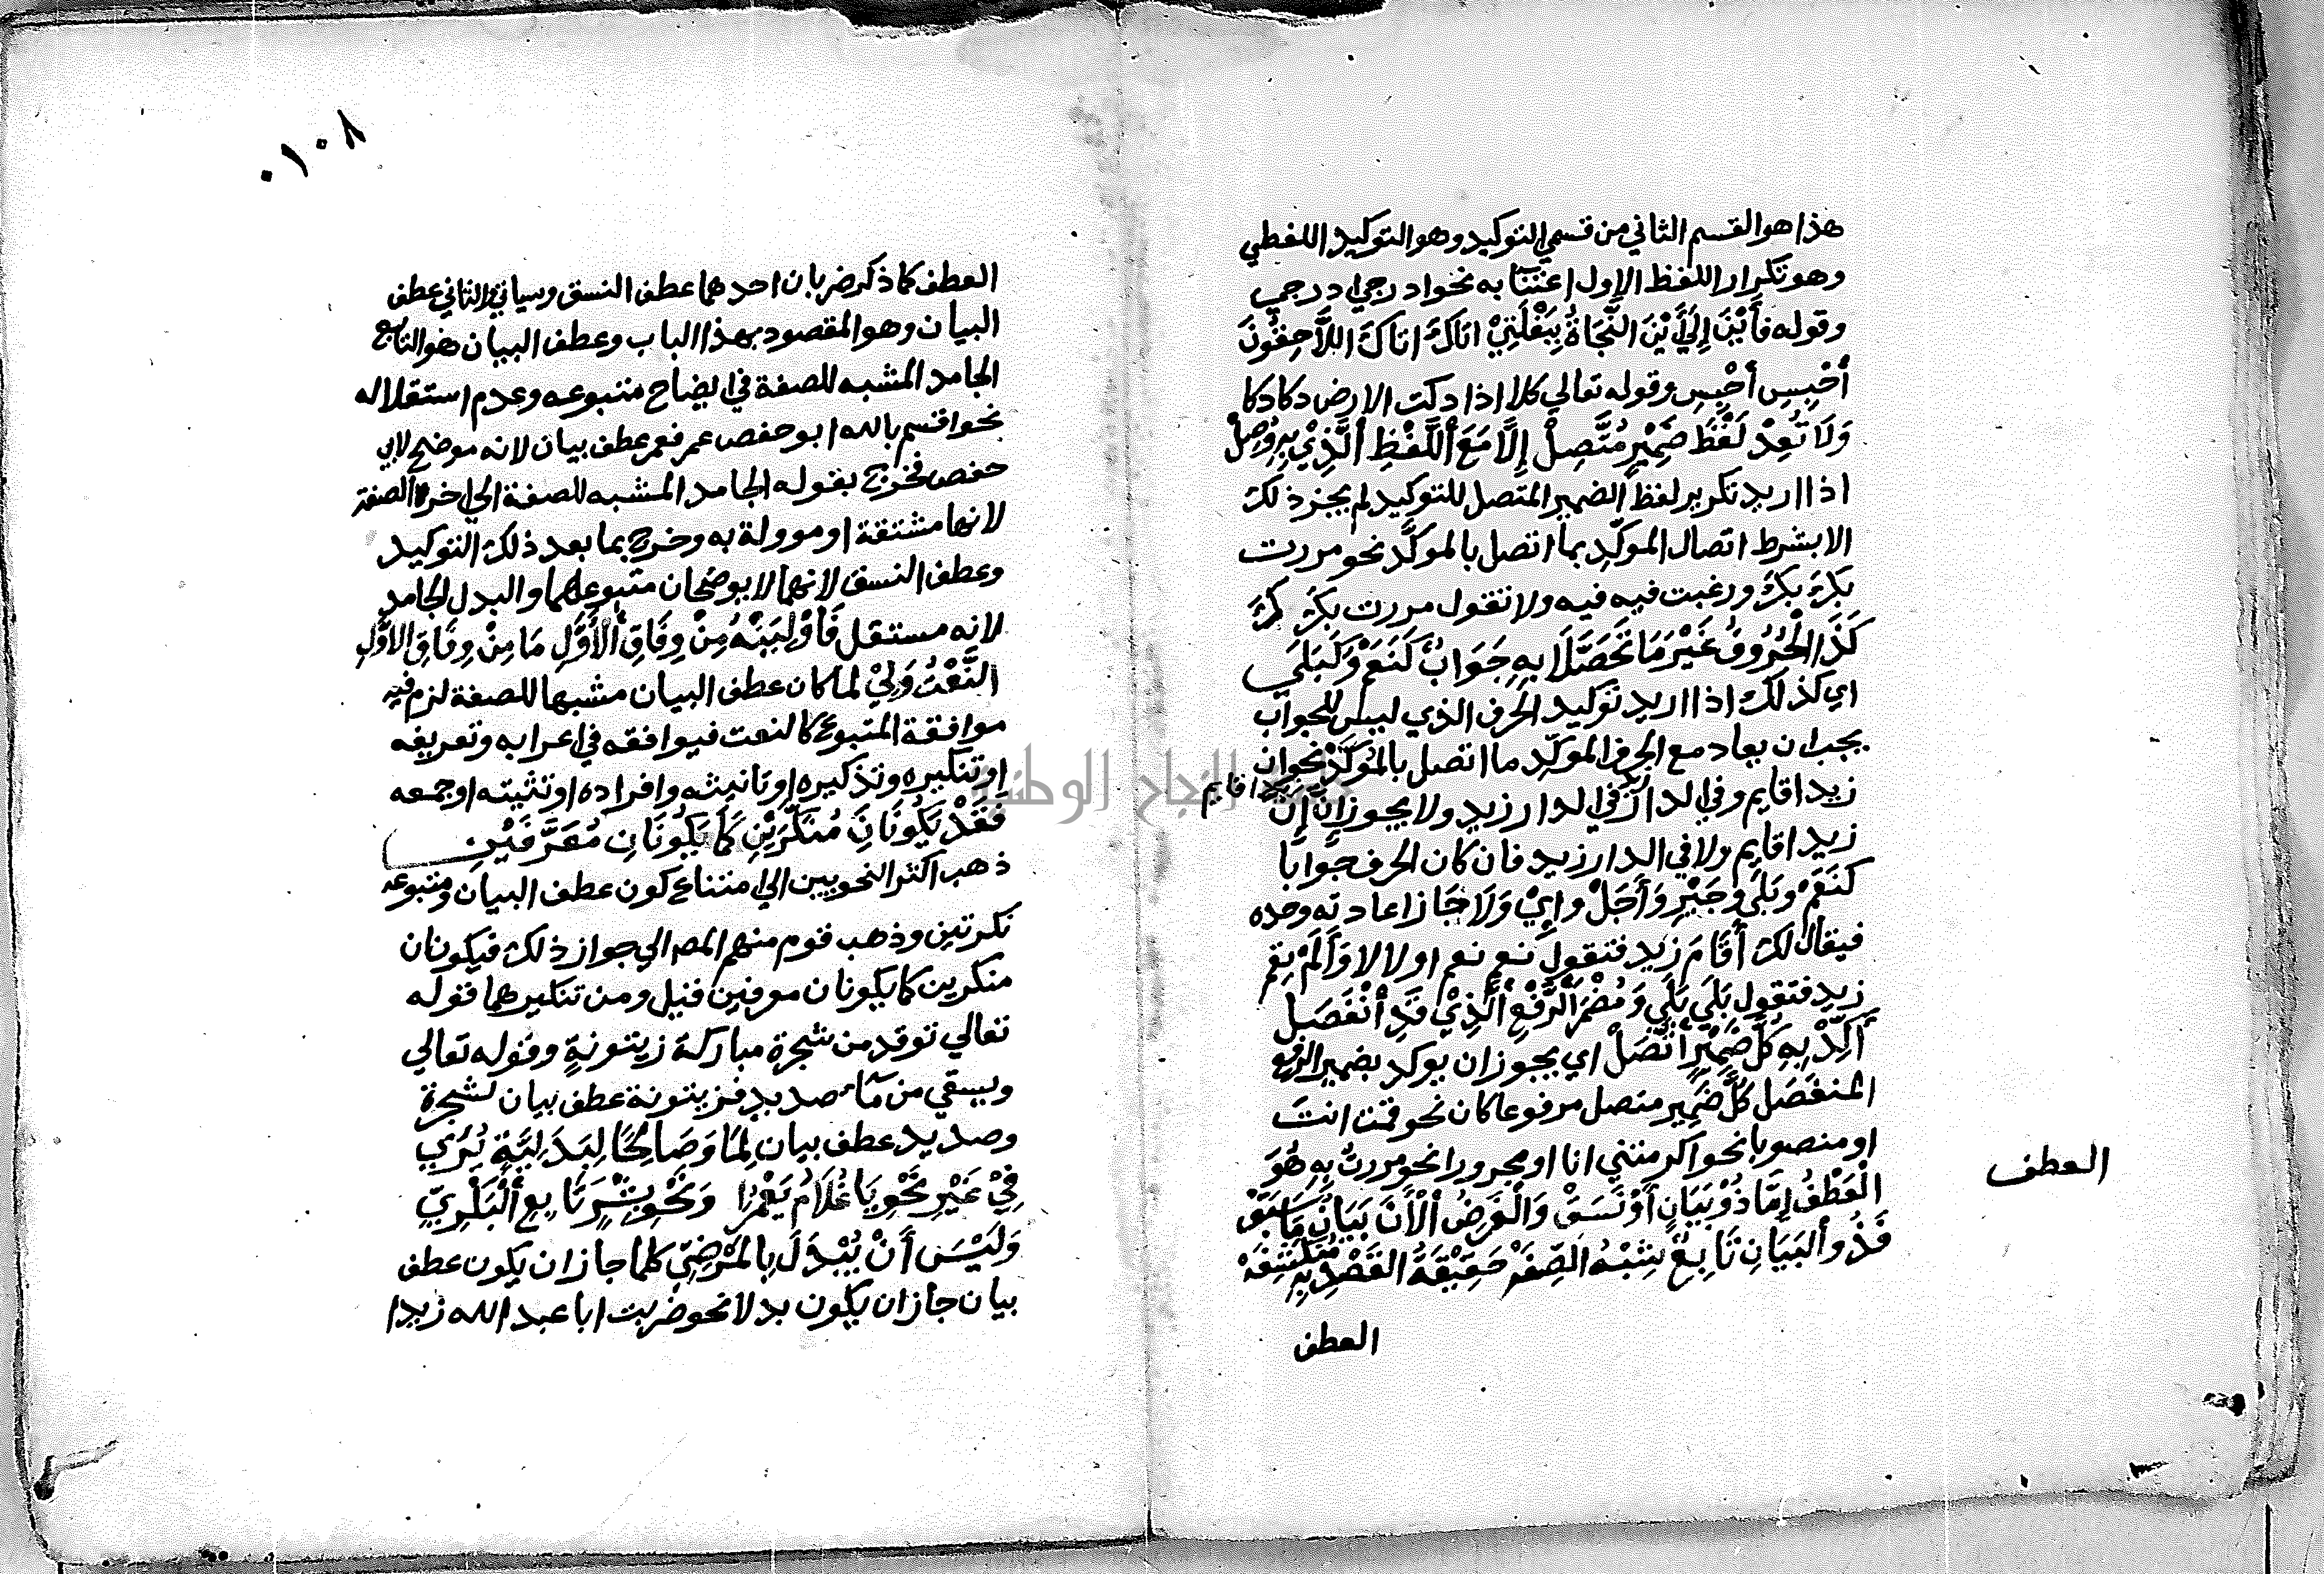 هذا هو القسم الثاني من قسمي التوكيد وهو التوكيد اللفظي
وهو تكرار اللفظ الاول اعتنا به نحو ادرجي ادرجي
وقوله فَأَيْنَ إِلَي أَيْنَ النَّجَاةُ بِبَغْلَتِيْ اتاكَ اتاكَ اللَّاحِقُونَ
أَحْبِسِ أَحْبِسِ وقوله تعالي كلا اذا دكت الارض دكا دكا
وَلَا تُعِدْ لَفْظَ ضَمِيْرٍ مُتَّصِلْ إِلَّا مَعَ اللَّفْظِ الَّذِيْ بِهِ وُصِلْ
اذا اريد تكرير لفظ الضمير المتصل للتوكيد لم يجز ذلك
الا بشرط اتصال الموكِّد بما اتصل بالموكَّد نحو مررت
بكَ بكَ ورغبت فيه فيه ولا تقول مررت بكَ كَ
كَذَا الْحُرُوفُ غَيْرَ مَا تَحَصَّلَا بِهِ جَوَابٌ كَنَعَمْ وَكَبَلَي
اي كذلك اذا اريد توكيد الحرف الذي ليس للجواب
يجب ان يعاد مع الحرف الموكِّد ما اتصل بالموكَّد نحو ان
زيدا قايم وفي الدار في الدار زيد ولا يجوز ان إِن
زيدا قايم
زيدا قايم ولا في الدار زيد فان كان الحرف جوابا
كَنَعَمْ وبَلَي وجَيْرِ وَأَجَلْ وإِيْ وَلَا جَازَ اعادته وحده
فيقال لك أَقَامَ زيد فتقول نعم نعم او لا لا وأَلَمْ يقم
زيد فتقول بَلَي بَلَي وَمُضْمَرُ الرَّفْعِ الَّذِيْ قَدِ انْفَصَلْ
أَكِّدْ بِهِ كُلَّ ضَمِيْرٍ اتَّصَلْ اي يجوز ان يوكد بضمير الرفع
المنفصل كُلَّ ضَمِير متصل مرفوعا كان نحو قمتَ انتَ
او منصوبا نحو اكرمتني انا او مجرورا نحو مررت بِهِ هُوَ
الْعَطْفُ إِمَّا ذُوْ بَيَانٍ أَوْ نَسَقْ وَالْغَرَضُ الْأَنَ بَيَانُ مَا سَبَقْ
فَذُو الْبَيَانِ تَابِعٌ شِبْهُ الصِّفَهْ حَقِيْقَةُ الْقَصْدِ بِهِ مُنْكَشِفَهْ
العطف
العطف
٠١٠٨
العطف كما ذكر ضربان احدهما عطف النسق وسياتي والثاني عطف
البيان وهو المقصود بهذا الباب وعطف البيان هو التابع
الجامد المشبه للصفة في ايضاح متبوعه وعدم استقلاله
نحو اقسم بالله ابو حفص عمر فعمر عطف بيان لانه موضح لابي
حفص فخرج بقوله الجامد المشبه للصفة الي اخره الصفة
لانها مشتقة او موولة به وخرج بما بعد ذلك التوكيد
وعطف النسق لانهما لا يوضحان متبوعهما والبدل الجامد
لانه مستقل فَأَوْلِيَنْهُ مِنْ وِفَاقِ الْأَوَّلِ مَا مِنْ وِفَاقِ الاوَّلِ
النَّعْتُ وَلِيْ لما كان عطف البيان مشبها للصفة لزم فيه
موافقة المتبوع كالنعت فيوافقه في اعرابه وتعريفه
او تنكيره وتذكيره او تانيثه وافراده او تثنيته او جمعه
فَقَدْ يَكُونَانِ مُنَكَّرَيْنِ كَمَا يَكُونَانِ مُعَرَّفَيْنِ
ذهب اكثر النحويين الي امتناع كون عطف البيان ومتبوعه
نكرتين وذهب قوم منهم المص الي جواز ذلك فيكونان
منكرين كما يكونان معرفين قيل ومن تنكيرهما قوله
تعالي توقد من شجرة مباركة زيتونةٍ وقوله تعالي
ويسقي من مآء صديد فزيتونة عطف بيان لشجرة
وصديد عطف بيان لِمَا وَصَالِحًا لِبَدَلِيَّةٍ يُرَي
فِيْ غَيْرِ نَحْوِ يَا غُلَامُ يَعْمُرَا وَنَحْوِ بِشْرٍ تَابِعِ الْبَكْرِيِّ
وَلَيْسَ أَنْ يُبْدَلَ بِالْمَرْضِيِّ كلما جاز ان يكون عطف
بيان جاز ان يكون بدلا نحو ضربت ابا عبد الله زيدا